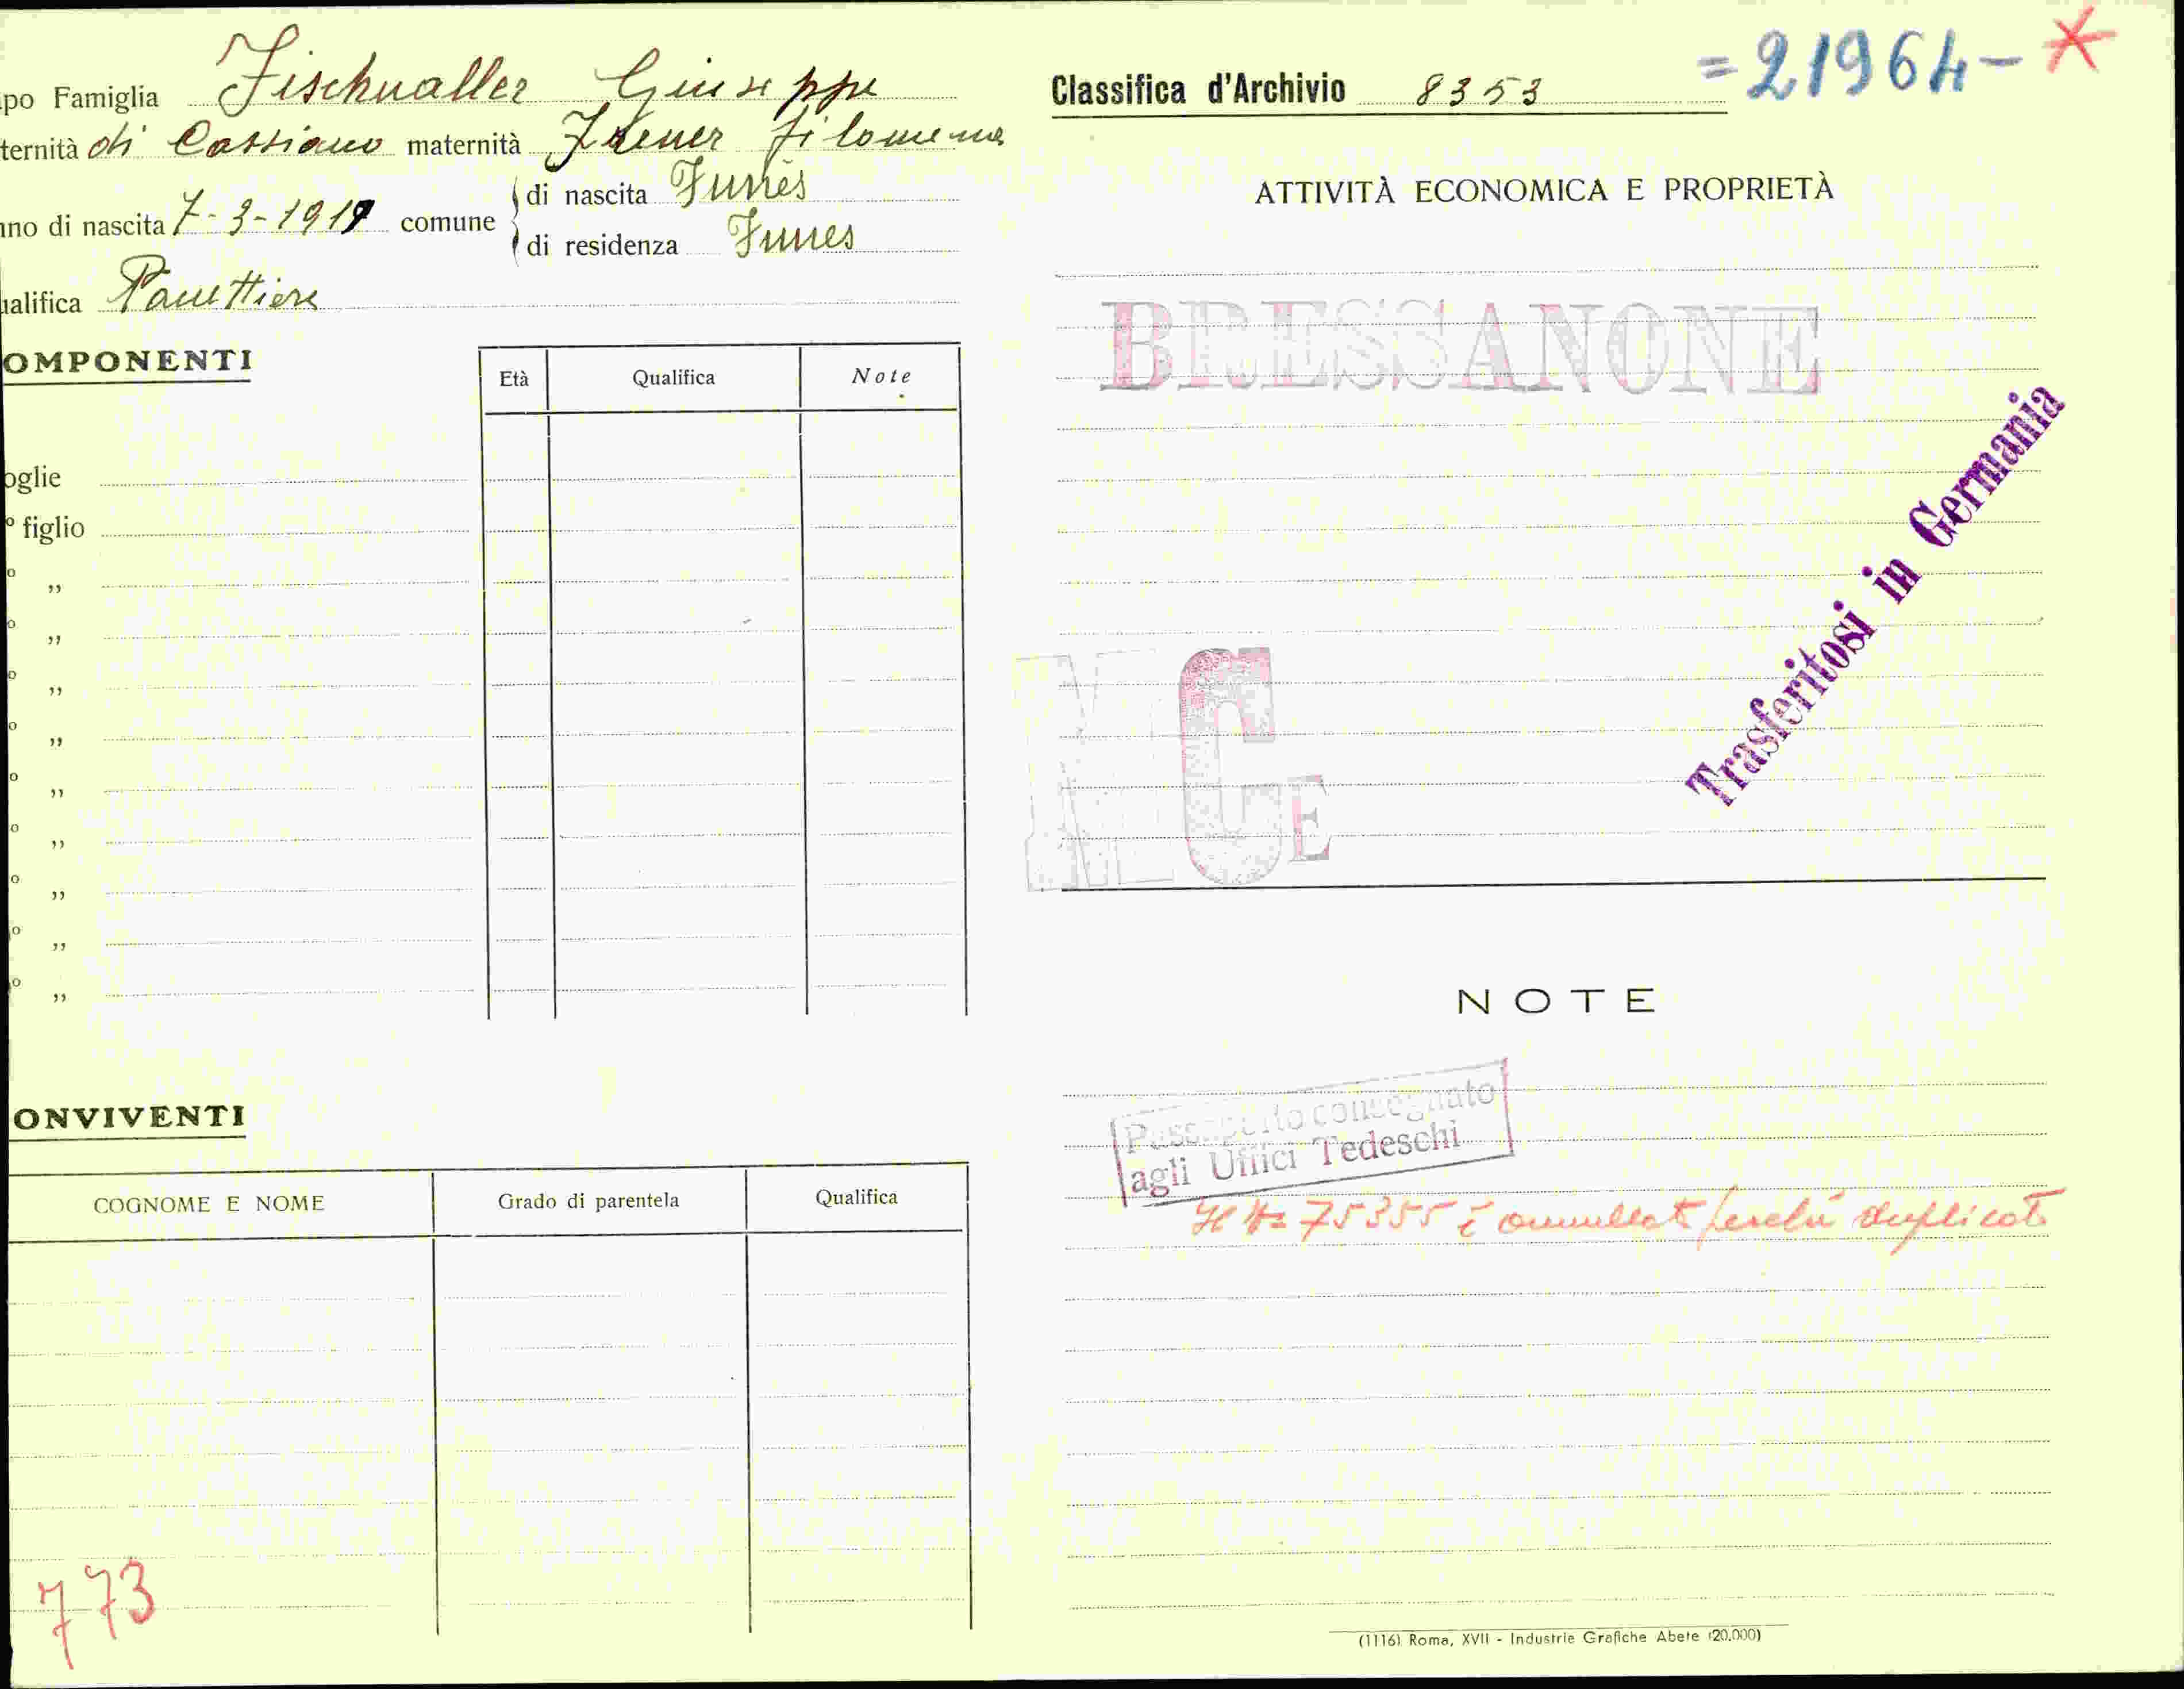 po Famiglia Fischnaller Giuseppe
ternità di Cassiano maternità Filomena
nno di nascita 7-3-1919 comune
di nascita Funes
di residenza Funes
ualifica Panettiere
OMPONENTI
Età Qualifica Note
oglie
º figlio
º „
º „
º „
º „
º „
º „
º „
º „
º „
ONVIVENTI
COGNOME E NOME Grado di parentela Qualifica
773
Classifica d'Archivio 8353
=21964- *
ATTIVITÀ ECONOMICA E PROPRIETÀ
BRESSANONE
Trasferitosi in Germania
M C E
NOTE
Passaporto consegnato
agli Uffici Tedeschi
Il 75355 è annullato perché duplicato
(1116) Roma, XVII - Industrie Grafiche Abete (20.000)